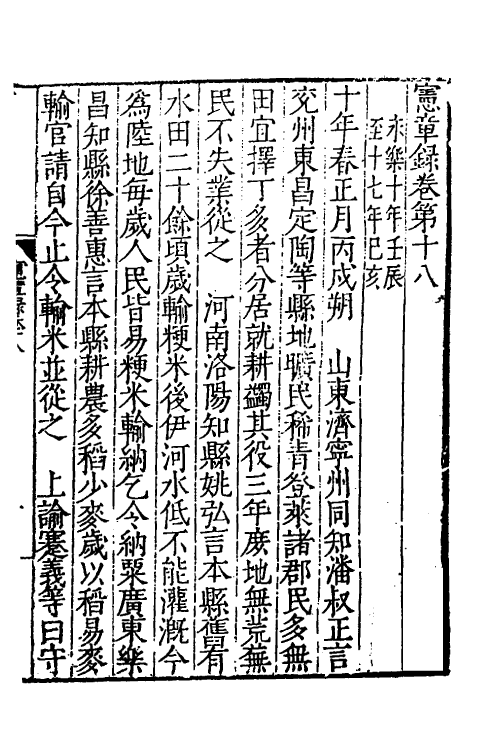 憲章錄卷第十八
永樂十年壬辰
至十七年己亥
十年春正月丙戌朔　山東濟寧州同知潘叔正言
兖州東昌定陶等縣地曠民稀青登萊諸郡民多無
田宜擇丁多者分居就耕蠲其役三年庻地無荒蕪
民不失業從之　河南洛陽知縣姚弘言本縣舊有
水田二十餘頃歲輸粳米後伊河水低不能灌溉今
爲陸地每歲人民皆易粳米輸納乞令納粟廣東樂
昌知縣徐善惠言本縣耕農多稻少麥歲以稻易麥
輸官請自今止令輸米並從之　上諭蹇義等曰守